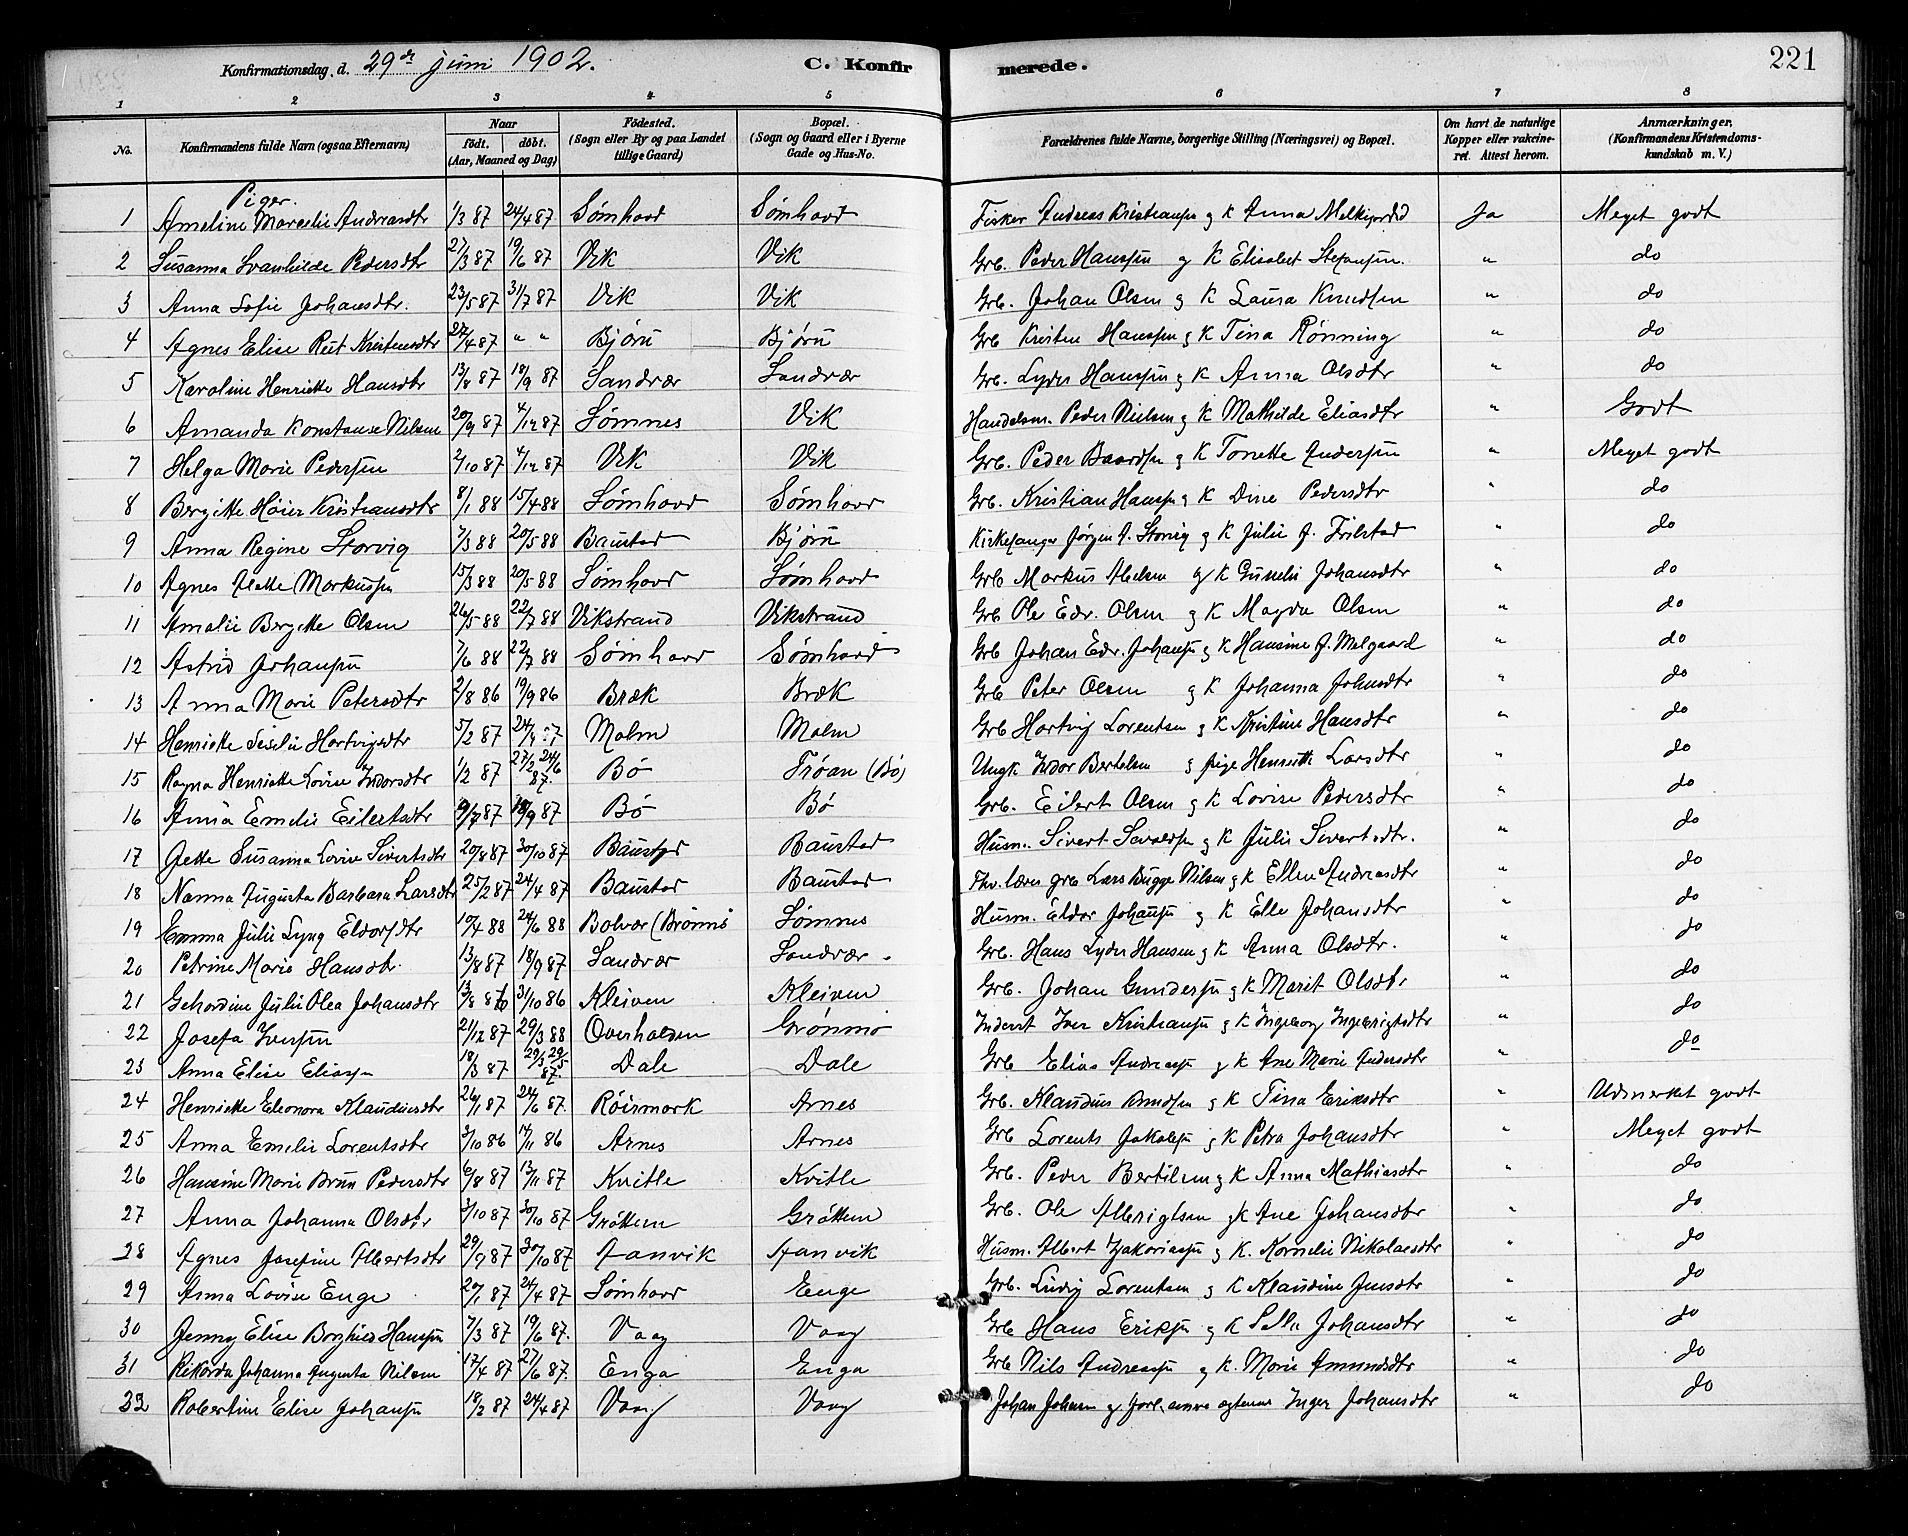 Konfirmationsdag, d. 29de juni 1902. C. Konfirmerede. 221
1 2 3 4 5 6 7 8
No. Konfirmandens fulde Navn (ogsaa Efternavn) Naar født. døbt. (Aar, Maaned og Dag) Fødested. (Sogn eller By og paa Landet tillige Gaard) Bopæl. (Sogn og Gaard eller i Byerne Gade og Hus-No. Forældrenes fulde Navne, borgerlige Stilling (Næringsvei) og Bopæl. Om havt de naturlige Kopper eller vakcineret. Attest herom. Anmærkninger, (Konfirmandens Kristendomskundskab m. V.)
Piger.
1 Ameline Marselie Andreasdtr 1/3 87 24/4 87 Sømhovd Sømhovd Fisker Andreas Kristiansen g K Anna Melkiorsd Ja Meget godt
2 Susanna Svanhilde Pedersdtr 27/3 87 19/6 87 Vik Vik Grb. Peder Hanssen g K Elisabet Stefansen. " do
3 Anna Sofie Johansdtr. 23/5 87 31/7 87 Vik Vik Grb. Johan Olsen g K Laura Knudsen " do
4 Agnes Elise Rut Kristensdtr 27/4 87 " " Bjørn Bjørn Grb Kristen Hanssen g K Tina Rønning " do
5 Karoline Henriette Hansdtr 13/8 87 18/9 87 Sandvær Sandvær Grb. Lyder Hanssen g K Anna Olsdtr " do
6 Amanda Konstanse Nilsen 20/9 87 4/12 87 Sømnes Vik Handelsm. Peder Nielsen g K Mathilde Eliasdtr " Godt
7 Helga Marie Pedersen 2/10 87 4/12 87 Vik Vik Grb. Peder Baardsen g K Tonette Andersen " Meget godt
8 Bergitte Høier Kristiansdtr 8/1 88 15/4 88 Sømhovd Sømhovd Grb. Kristian Hanssen g K Dine Pedersdtr " do
9 Anna Regine Storvig 7/3 88 20/5 88 Baustad Bjørn Kirkesanger Jørgen A. Storvig g K Julie f. Frilstad " do
10 Agnes Alette Markussen 15/3 88 20/5 88 Sømhovd Sømhovd Grb Markus Abelsen g K Gunelie Johansdtr " do
11 Amalie Bergitte Olsen 26/5 88 22/7 88 Vikstrand Vikstrand Grb Ole Edv. Olsen g K Magda Olsen " do
12 Astrid Johansen 7/6 88 22/7 88 Sømhovd Sømhovd Grb Johan Edv. Johansen g K Hansine f. Melgaard " do
13 Anna Marie Petersdtr 2/8 86 19/9 86 Bræk Bræk Grb Peter Olsen g K Johanna Johnsdtr " do
14 Henriette Seselie Hartvigsdtr 5/2 87 24/4 87 Molm Molm Grb Hartvig Lorentsen g K Kristine Hansdtr " do
15 Ragna Henriette Lovise Indorsdtr 1/2 87 27/2 24/6 87. Bø Trøan (Bø) Ungk Indor Bertelsen g pige Henriette Larsdtr " do
16 Anna Emelie Eilertsdtr 19/7 87 18/9 87 Bø Bø Grb. Eilert Olsen g K Lovise Pedersdtr " do
17 Jette Susanna Lovise Sivertsdtr 20/8 87 30/10 87 Baustad Baustad Husm. Sivert Sevaldsen g K Julie Sivertsdtr. " do
18 Nanna Augusta Barbara Larsdtr 25/2 87 24/4 87 Baustad Baustad Fhv. lærer grb Lars Bugge Nilsen g K Ellen Andreasdtr " do
19 Emma Julie Lyng Eldorsdtr 10/4 88 24/6 88 Bolvær (Brønnø Sømnes Husm. Eldor Johansen g K Elle Johansdtr " do
20 Petrine Marie Hansdtr. 13/8 87 18/9 87 Sandvær Sandvær. Grb. Hans Lyder Hansen g K Anna Olsdtr. " do
21 Gehardine Julie Olea Johansdtr 13/8 86 3/10 86 Kleiven Kleiven Grb. Johan Gundersen g K Marit Olsdtr " do
22 Josefa Iversen 21/12 87 29/3 88 Overhalden Grønmo Inderst Iver Kristiansen g K Ingeborg Ingebrigtsdtr " do
23 Anna Elise Eliassen 18/3 87 29/3 29/5 87. Dale Dale Grb Elias Andreassen g K Ane Marie Andersdtr " do
24 Henriette Eleonora Klaudiusdtr 26/1 87 24/6 87. Røirmark Arnes Grb. Klaudius Knudsen g K Tina Eriksdtr " Udmerket godt
25 Anna Emelie Lorentsdtr 3/10 86 14/11 86 Arnes Arnes Grb Lorents Jakobsen g K Petra Johansdtr " Meget godt
26 Hansine Marie Brun Pedersdtr 6/8 87 13/11 87 Kvitle Kvitle Grb. Peder Bertilsen g K Anna Mathiasdtr " do
27 Anna Johanna Olsdtr 3/10 87 30/10 87 Grøttem Grøttem Grb. Ole Albrigtsen g K Ane Johansdtr " do
28 Agnes Josefine Albertsdtr 29/7 87 30/10 87 Aanvik Aanvik Husm. Albert Zakariassen g K. Kornelie Nikolaisdtr " do
29 Anna Lovise Enge 20/1 87 24/4 87 Sømhovd Enge Grb. Ludvig Lorentsen g K Klaudine Jensdtr " do
30 Jenny Elise Borghild Hanssen 7/3 87 19/6 87. Vaag Vaag Grb Hans Eriksen g K Pella Johansdtr " do
31 Rikarda Johanna Augusta Nilsen 17/4 87 27/6 87. Enga Enga Grb Nils Andreassen g K. Marie Amundsdtr " do
32 Robertine Elise Johansen 18/2 87 24/4 87 Vaag Vaag Johan Johnsen g Inger Johansdtr " do